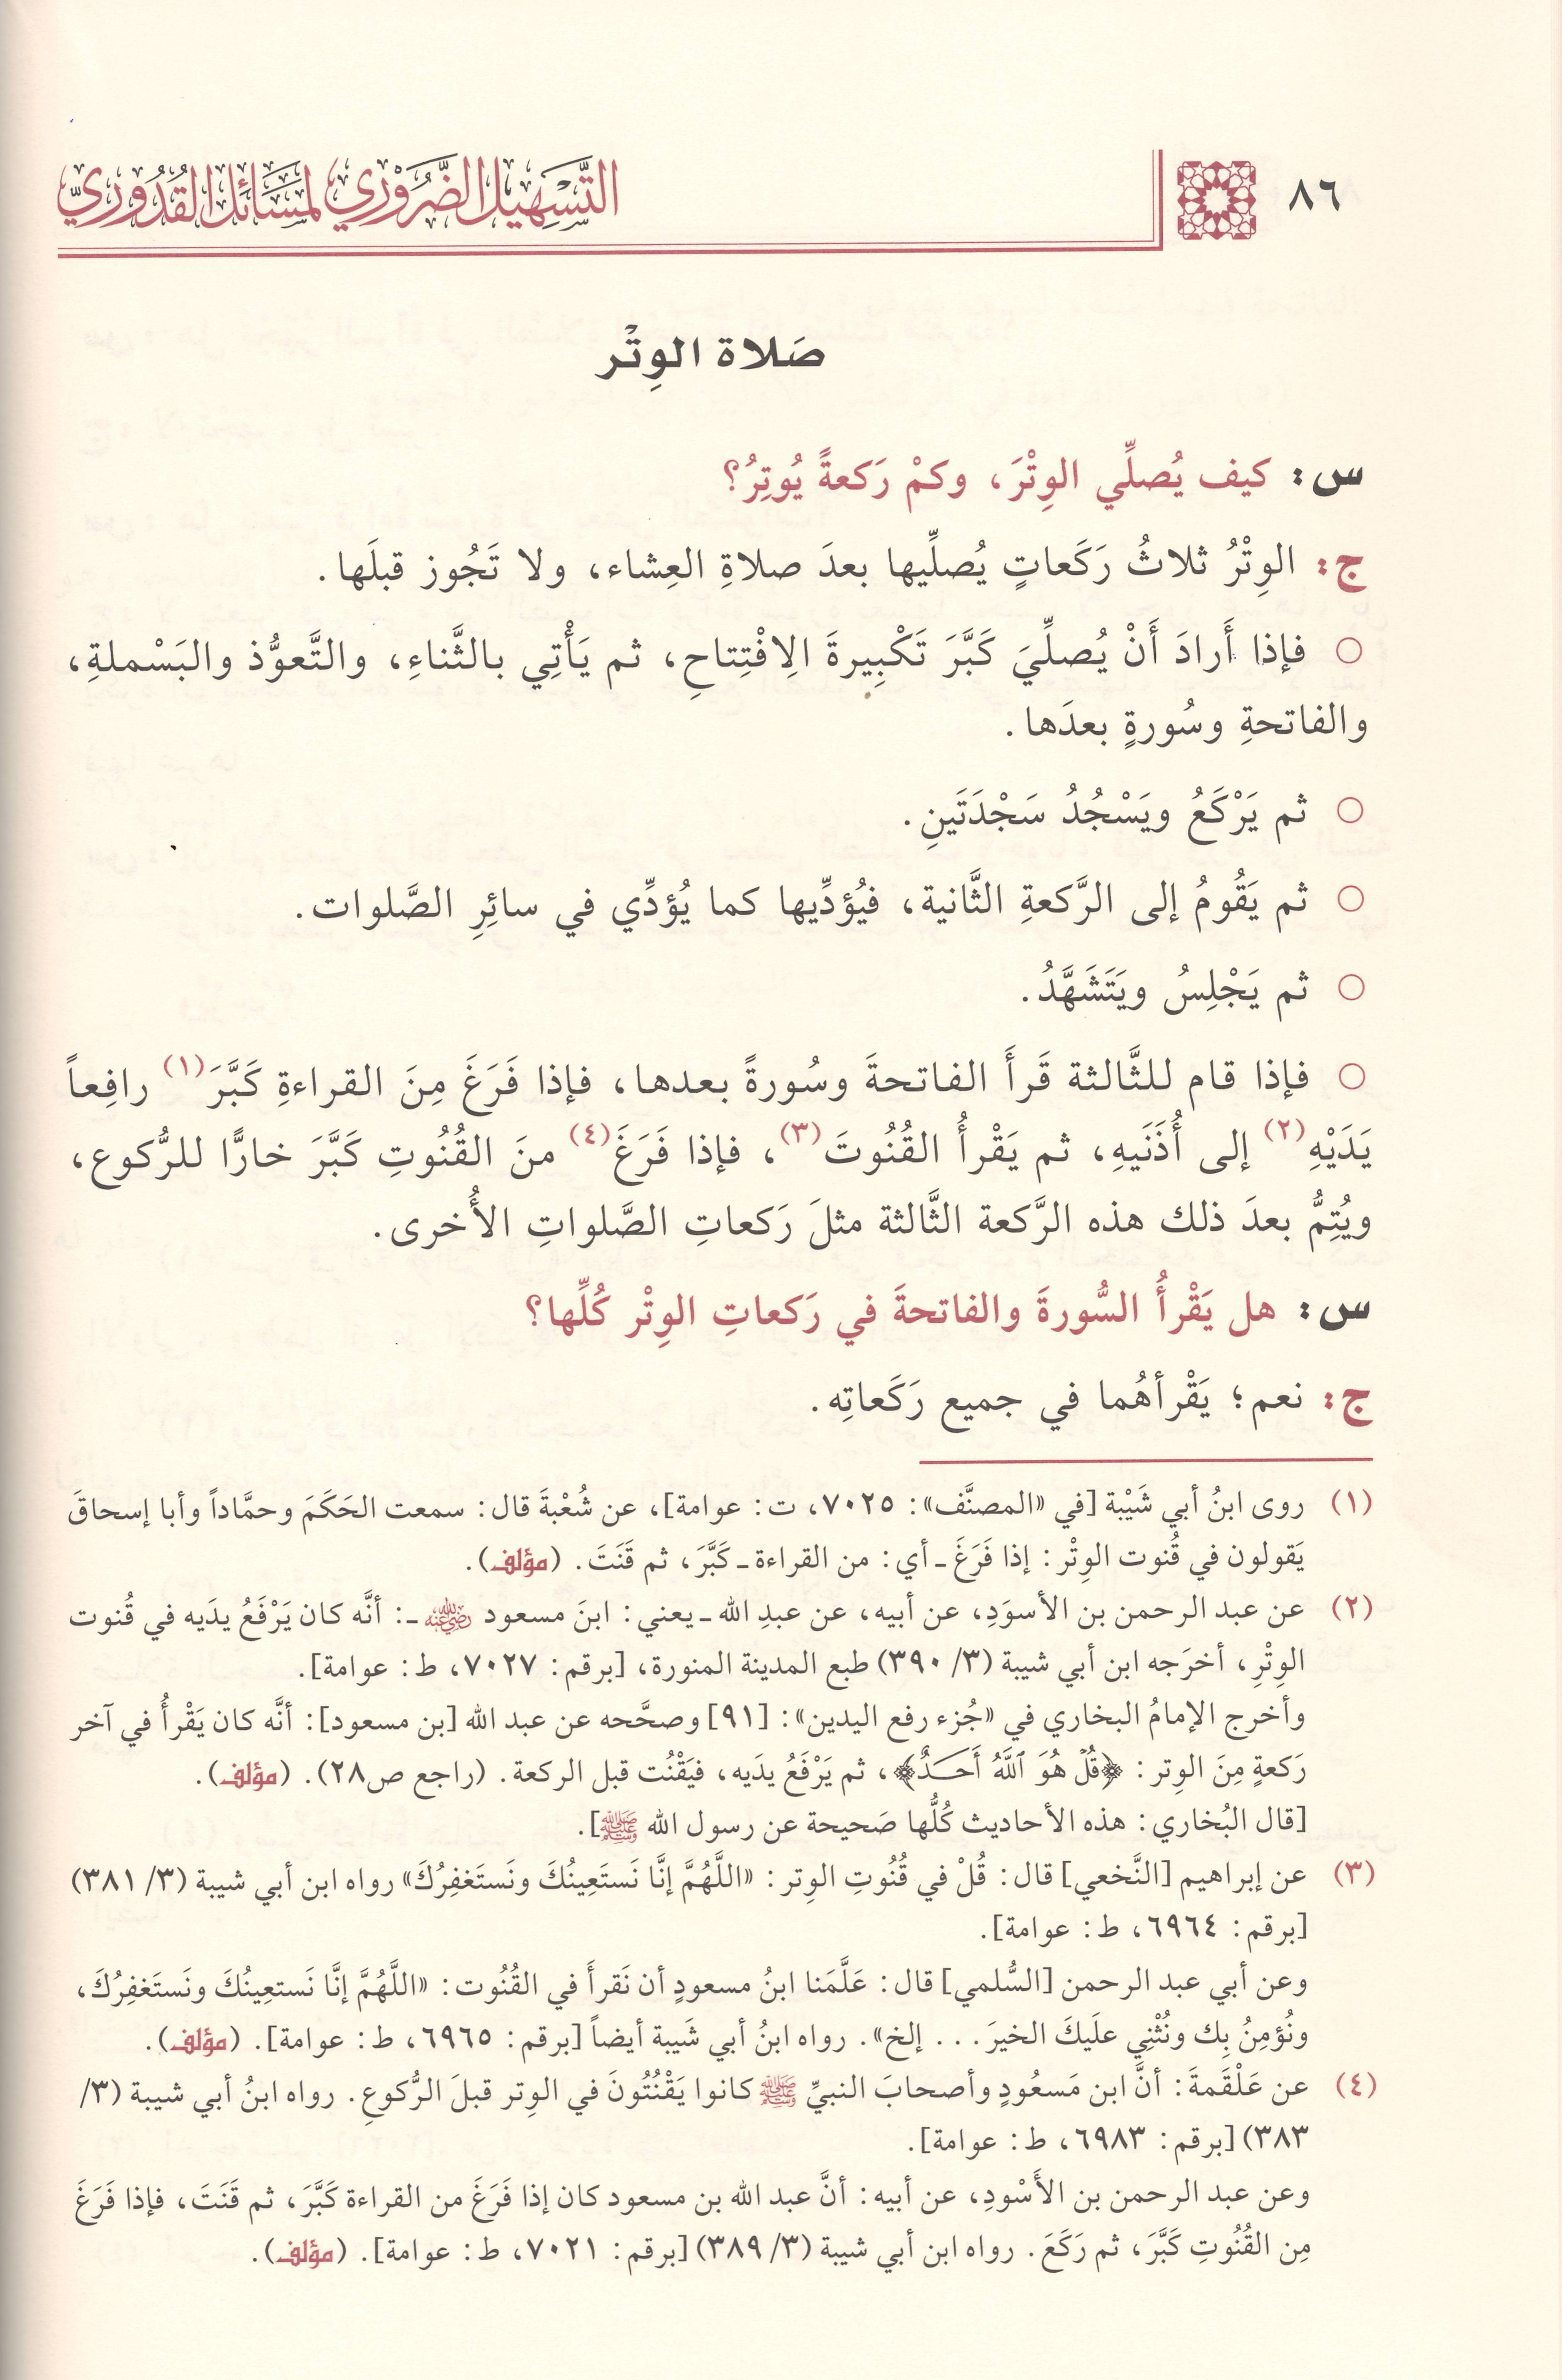 ٨٦
التَّسْهِيلُ الضَّرُوْرِي لِمَسَائِلِ القُدُوْرِيّ
صَلاة الوِتْر
س: كيف يُصلِّي الوِتْرَ، وكمْ رَكعةً يُوتِرُ؟
ج: الوِتْرُ ثلاثُ رَكَعاتٍ يُصلِّيها بعدَ صلاةِ العِشاء، ولا تَجُوز قبلَها.
○ فإذا أَرادَ أَنْ يُصلِّيَ كَبَّرَ تَكْبِيرةَ الِافْتِتاحِ، ثم يَأْتِي بالثَّناءِ، والتَّعوُّذ والبَسْملةِ،
والفاتحةِ وسُورةٍ بعدَها.
○ ثم يَرْكَعُ ويَسْجُدُ سَجْدَتَينِ.
○ ثم يَقُومُ إلى الرَّكعةِ الثَّانية، فيُؤدِّيها كما يُؤدِّي في سائِرِ الصَّلوات.
○ ثم يَجْلِسُ ويَتَشَهَّدُ.
○ فإذا قام للثَّالثة قَرأَ الفاتحةَ وسُورةً بعدها، فإذا فَرَغَ مِنَ القراءةِ كَبَّرَ(١) رافِعاً
يَدَيْهِ(٢) إلى أُذَنَيهِ، ثم يَقْرأُ القُنُوتَ(٣)، فإذا فَرَغَ(٤) منَ القُنُوتِ كَبَّرَ خارًّا للرُّكوع،
ويُتِمُّ بعدَ ذلك هذه الرَّكعة الثَّالثة مثلَ رَكعاتِ الصَّلواتِ الأُخرى.
س: هل يَقْرأُ السُّورةَ والفاتحةَ في رَكعاتِ الوِتْر كُلِّها؟
ج: نعم؛ يَقْرأهُما في جميع رَكَعاتِه.
(١) روى ابنُ أبي شَيْبة [في «المصنَّف»: ٧٠٢٥، ت: عوامة]، عن شُعْبةَ قال: سمعت الحَكَمَ وحمَّاداً وأبا إسحاقَ
يَقولون في قُنوت الوِتْر: إذا فَرَغَ ـ أي: من القراءة ـ كَبَّرَ، ثم قَنَتَ. (مؤلف).
(٢) عن عبد الرحمن بن الأسوَدِ، عن أبيه، عن عبدِ الله ـ يعني: ابنَ مسعود رضي الله عنه ـ: أنَّه كان يَرْفَعُ يدَيه في قُنوت
الوِتْرِ، أخرَجه ابن أبي شيبة (٣/ ٣٩٠) طبع المدينة المنورة، [برقم: ٧٠٢٧، ط: عوامة].
وأخرج الإمامُ البخاري في «جُزء رفع اليدين»: [٩١] وصحَّحه عن عبد الله [بن مسعود]: أنَّه كان يَقْرأُ في آخر
رَكعةٍ مِنَ الوِتر: ﴿قُلْ هُوَ ٱللَّهُ أَحَدٌ﴾، ثم يَرْفَعُ يدَيه، فيَقْنُت قبل الركعة. (راجع ص٢٨). (مؤلف).
[قال البُخاري: هذه الأحاديث كُلُّها صَحيحة عن رسول الله ﷺ].
(٣) عن إبراهيم [النَّخعي] قال: قُلْ في قُنُوتِ الوِتر: «اللَّهُمَّ إنَّا نَستَعِينُكَ ونَستَغفِرُكَ» رواه ابن أبي شيبة (٣/ ٣٨١)
[برقم: ٦٩٦٤، ط: عوامة].
وعن أبي عبد الرحمن [السُّلمي] قال: عَلَّمَنا ابنُ مسعودٍ أن نَقرأَ في القُنُوت: «اللَّهُمَّ إنَّا نَستعِينُكَ ونَستَغفِرُكَ،
ونُؤمِنُ بِك ونُثْنِي علَيكَ الخيرَ... إلخ». رواه ابنُ أبي شَيبة أيضاً [برقم: ٦٩٦٥، ط: عوامة]. (مؤلف).
(٤) عن عَلْقَمةَ: أنَّ ابن مَسعُودٍ وأصحابَ النبيِّ ﷺ كانوا يَقْنُتُونَ في الوِتر قبلَ الرُّكوعِ. رواه ابنُ أبي شيبة (٣/
٣٨٣) [برقم: ٦٩٨٣، ط: عوامة].
وعن عبد الرحمن بن الأَسْودِ، عن أبيه: أنَّ عبد الله بن مسعود كان إذا فَرَغَ من القراءة كَبَّرَ، ثم قَنَتَ، فإذا فَرَغَ
مِن القُنُوتِ كَبَّرَ، ثم رَكَعَ. رواه ابن أبي شيبة (٣/ ٣٨٩) [برقم: ٧٠٢١، ط: عوامة]. (مؤلف).